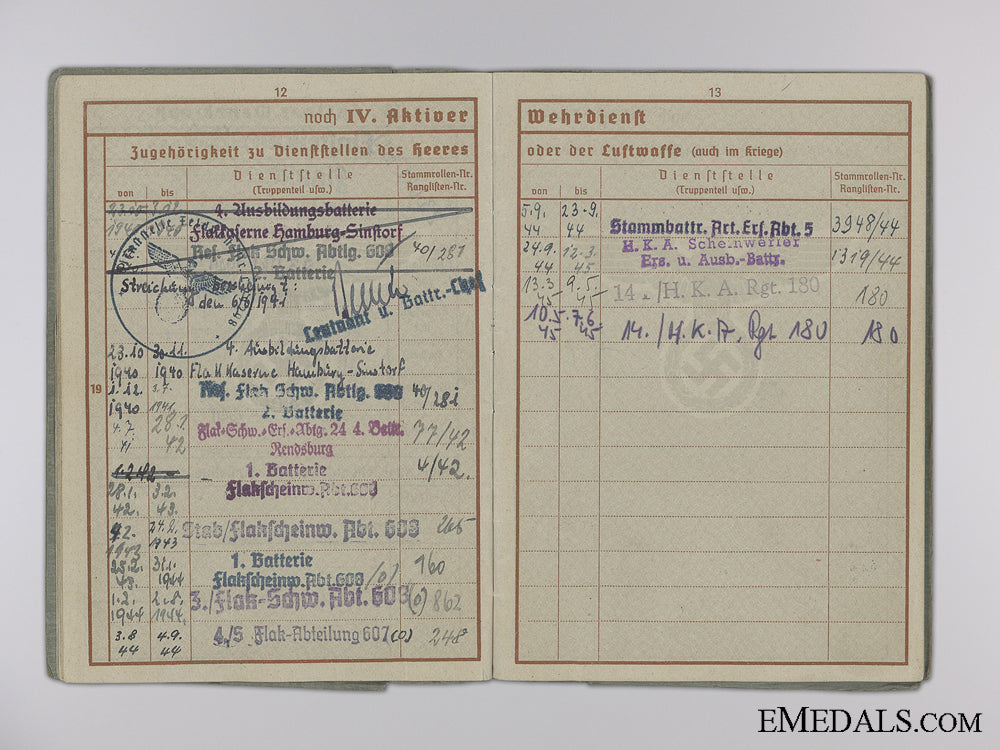 12
noch IV. Aktiver
Zugehörigkeit zu Dienststellen des Heeres
von bis
Dienststelle
(Truppenteil usw.)
Stammrollen-Nr.
Ranglisten-Nr.
4. Ausbildungsbatterie
Flakkaserne Hamburg-Sinstorf
Res. Flak Schw. Abtlg. 608 40/281
2. Batterie
Streichung
den 6/6 1941
Leutnant u. Battr.-Chef
23.10 30.11. 4. Ausbildungsbatterie
1940 1940 Flakkaserne Hamburg-Sinstorf
19
1.12 Res. Flak Schw. Abtlg. 608 40/281
1940 1941 2. Batterie
4.7. 28.1. Flak-Schw.-Ers.-Abtg. 24 4. Battr. 77/42
41 42 Rendsburg
1. Batterie 4/42.
28.1. 3.2. Flakscheinw. Abt. 608
42. 43.
24.2. Stab/Flakscheinw. Abt. 608 265
1943 1943
25.2. 31.1. 1. Batterie
43. 1944 Flakscheinw. Abt. 608 (o) 160
1.2. 2.8. 3./Flak-Schw. Abt. 608 (o) 862
1944 1944.
3.8 4.9. 4./S Flak-Abteilung 607 (o) 248
44 44
13
Wehrdienst
oder der Luftwaffe (auch im Kriege)
von bis
Dienststelle
(Truppenteil usw.)
Stammrollen-Nr.
Ranglisten-Nr.
5.9. 23.9.
44 44 Stammbattr. Art. Ers. Abt. 5 3948/44
24.9. 12.3. H.K.A. Scheinwerfer
44 45 Ers. u. Ausb.-Battr. 1319/44
13.3 9.5.
45 45 14./H.K.A. Rgt. 180 180
10.5. 7.6
45 45 14./H.K.A. Rgt. 180 180
eMedals.com